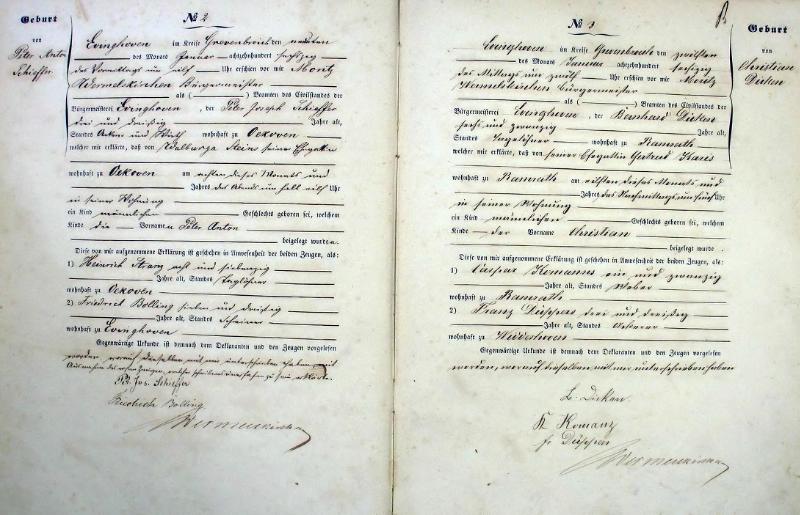 Geburt
von
Peter Anton
Schieffer
№ 2
Evinghoven im Kreise Grevenbroich den neunten
des Monats Januar achtzehnhundert sechszig
des Vormittags um elf Uhr erschien vor mir Moritz
Wermelskirchen Bürgermeister
als ( ) Beamten des Civilstandes der
Bürgermeisterei Evinghoven, der Peter Joseph Schieffer
drei und dreißig Jahre alt,
Standes Ackerer und Wirth wohnhaft zu Oekoven
welcher mir erklärte, daß von Walburga Steins seiner Ehegattin
wohnhaft zu Oekoven am achten dieses Monats und
Jahres des Abends um halb elf Uhr
in seiner Wohnung
ein Kind männlichen Geschlechts geboren sei, welchem
Kinde die Vornamen Peter Anton
beigelegt wurden.
Diese von mir aufgenommene Erklärung ist geschehen in Anwesenheit der beiden Zeugen, als:
1) Heinrich acht und siebenzig
Jahre alt, Standes Taglöhner
wohnhaft zu Oekoven
2) Friedrich Bölling sieben und dreißig
Jahre alt, Standes Schreiner
wohnhaft zu Evinghoven
Gegenwärtige Urkunde ist demnach dem Deklaranten und den Zeugen vorgelesen
worden, worauf dieselben mit mir unterschrieben haben mit
Ausnahme des ersten Zeugen, welcher schreibens unerfahren zu sein erklärte.
Pet. Jos. Schieffer
Friedrich Bölling
Wermelskirchen
№ 3
Geburt
von
Christian
Dicken
Evinghoven im Kreise Grevenbroich den zwölften
des Monats Januar achtzehnhundert sechszig
des Mittags um zwölf Uhr erschien vor mir Moritz
Wermelskirchen Bürgermeister
als ( ) Beamten des Civilstandes der
Bürgermeisterei Evinghoven, der Bernhard Dicken
sechs und zwanzig Jahre alt,
Standes Tagelöhner wohnhaft zu Ramrath
welcher mir erklärte, daß von seiner Ehegattin Gertrud
wohnhaft zu Ramrath am elften dieses Monats und
Jahres des Nachmittags um fünf Uhr
in seiner Wohnung
ein Kind männlichen Geschlechts geboren sei, welchem
Kinde der Vorname Christian
beigelegt wurde
Diese von mir aufgenommene Erklärung ist geschehen in Anwesenheit der beiden Zeugen, als:
1) Caspar Komanns ein und zwanzig
Jahre alt, Standes Weber
wohnhaft zu Ramrath
2) Franz Düppers drei und dreißig
Jahre alt, Standes Ackerer
wohnhaft zu
Gegenwärtige Urkunde ist demnach dem Deklaranten und den Zeugen vorgelesen
worden, worauf dieselben mit mir unterschrieben haben
B. Dicken
K Komanz
fr Düppers
Wermelskirchen